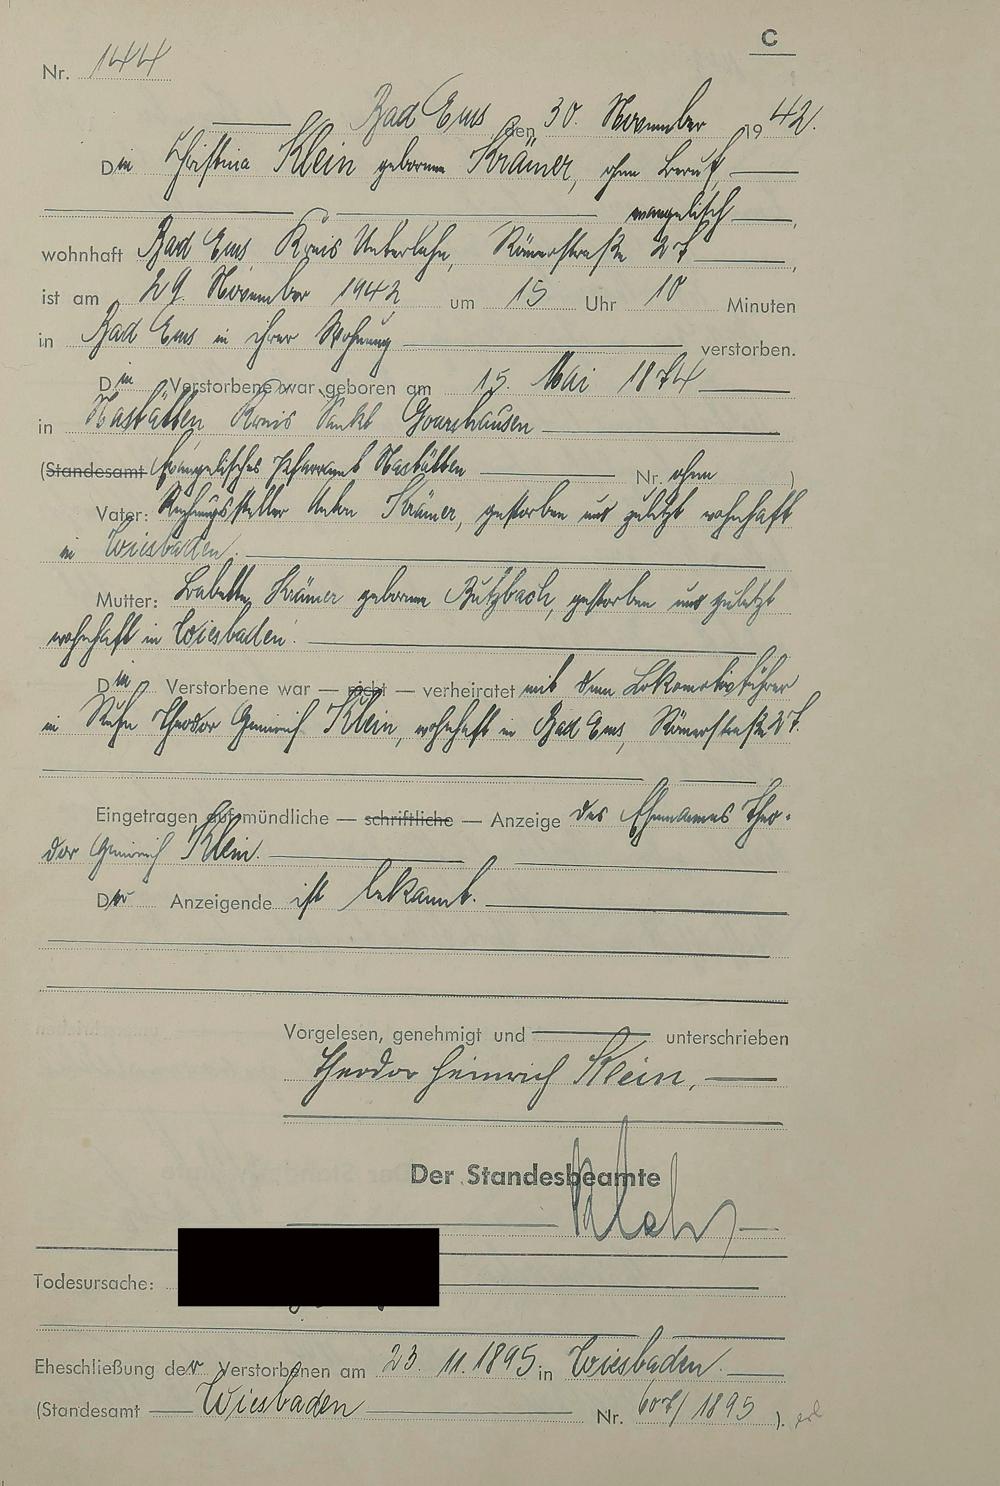 C
Nr. 144
Bad Ems den 30. November 1942.
Die Christina Klein geborene Krämer, ohne Beruf,
evangelisch,
wohnhaft Bad Ems Kreis Unterlahn, Römerstraße 27,
ist am 29. November 1942 um 15 Uhr 10 Minuten
in Bad Ems in ihrer Wohnung verstorben.
Die Verstorbene war geboren am 15. Mai 1874
in Nastätten Kreis Sankt Goarshausen
(Standesamt Evangelisches Pfarramt Nastätten Nr. ohne)
Vater: Anton Krämer, gestorben und zuletzt wohnhaft
in Wiesbaden.
Mutter: Babette Krämer geborene Butzbach, gestorben und zuletzt
wohnhaft in Wiesbaden.
Die Verstorbene war — nicht — verheiratet mit dem Lokomotivführer
in Ruhe Theodor Heinrich Klein, wohnhaft in Bad Ems, Römerstraße 27.
Eingetragen auf mündliche — schriftliche — Anzeige des Ehemannes Theo-
dor Heinrich Klein.
Der Anzeigende ist bekannt.
Vorgelesen, genehmigt und unterschrieben
Theodor Heinrich Klein,
Der Standesbeamte
Todesursache:
Eheschließung der Verstorbenen am 23. 11. 1895 in Wiesbaden.
(Standesamt Wiesbaden Nr. 607/1895).